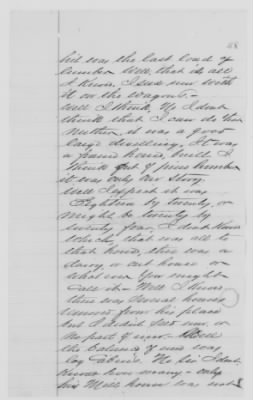 48
his was the last load of
lumber Well, that is all
I know. I seed him with
it on the wagon.
Well I think, No I dont
think that I can do that
Neither, it was a good
large dwelling. It was
a framed house, built I
think of pine lumber
it was only one story.
Well I expect it was
Eighteen by twenty, or
might be twenty by
twenty four, I dont know
which, that was all to
that house, there was a
dairy or out house or
whatever you might
call it - Well I know
there was several houses
removed from his place
but I didnt see um, or
no part of um. Well
the balance of um was
log cabins. No sir I dont
know how many - only
his Mill house was not